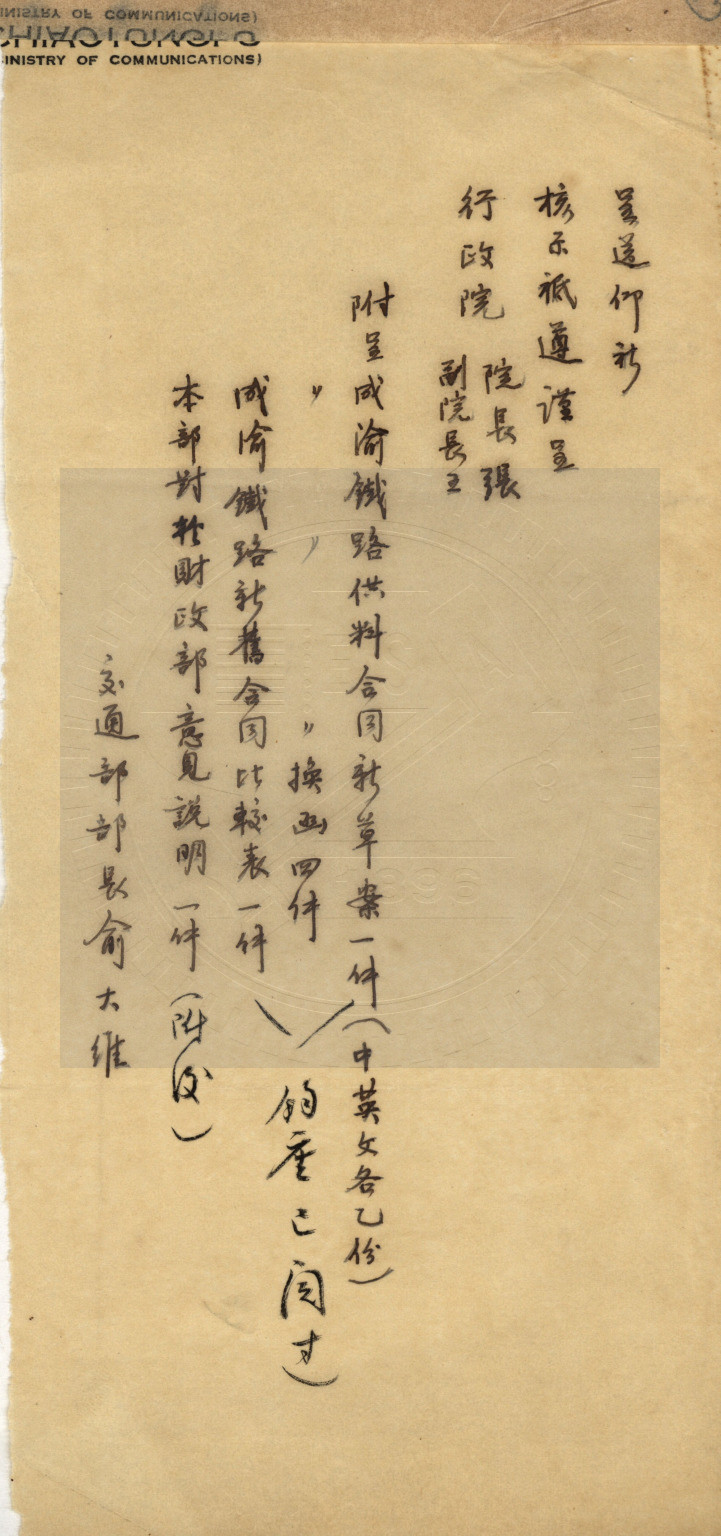 MINISTRY OF COMMUNICATIONS)
INISTRY OF COMMUNICATIONS)
呈送仰祈
核示祗遵謹呈
行政院 院長張
副院長王
附呈成渝鐵路供料合同新草案一件(中英文各乙份)
〃 〃 〃換函四件
成渝鐵路新舊合同比較表一件
本部對於財政部意見說明一件(附後)
交通部部長俞大維
鈞座已閱过)
1896